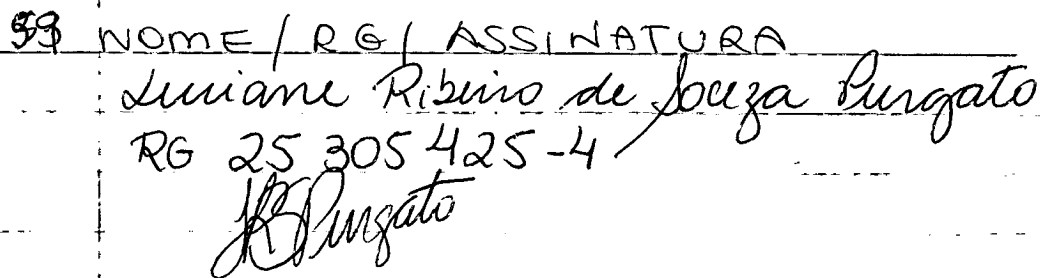 59 NOME / RG / ASSINATURA
Luciane Ribeiro de Souza Purgato
RG 25 305 425-4
LRSPurgato